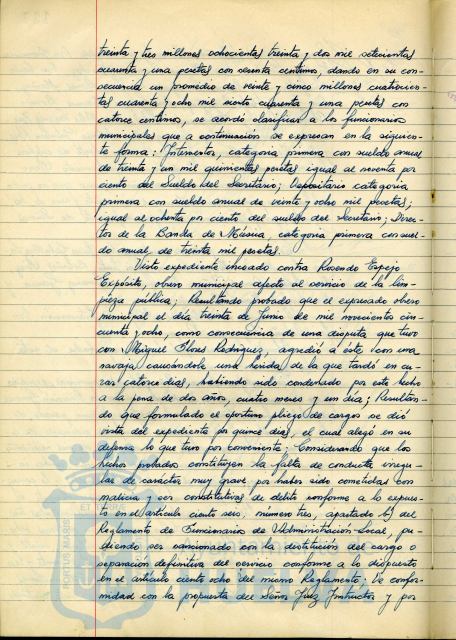 treinta y tres millones ochocientas treinta y dos mil setecientas
cuarenta y una pesetas con sesenta centimos, dando en su con-
secuencia un promedio de veinte y cinco millones cuatrocien-
tas cuarenta y ocho mil ciento cuarenta y una pesetas con
catorce centimos, se acordó clasificar a los funcionarios
municipales que a continuación se expresan en la siguien-
te forma: Interventor, categoria primera con sueldo anual
de treinta y un mil quinientas pesetas igual al noventa por
ciento del Sueldo del Secretario; Depositario categoria
primera con sueldo anual de veinte y ocho mil pesetas;
igual al ochenta por ciento del sueldo del Secretario; Direc-
tor de la Banda de Música, categoria primera con suel-
do anual, de treinta mil pesetas.
Visto expediente incoado contra Rosendo Espejo
Expósito, obrero municipal afecto al servicio de la lim-
pieza pública; Resultando probado que el expresado obrero
municipal el día treinta de Junio de mil novecientos cin-
cuenta y ocho, como consecuencia de una disputa que tuvo
con Miguel Flores Rodriguez, agredió a éste con una
navaja causandole una herida de la que tardó en cu-
rar catorce dias, habiendo sido condenado por este hecho
a la pena de dos años, cuatro meses y un dia; Resultan-
do que formulado el oportuno pliego de cargos se dió
vista del expediente por quince dias, el cual alegó en su
defensa lo que tuvo por conveniente; Considerando que los
hechos probados constituyen la falta de conducta irregu-
lar de caracter muy grave, por haber sido cometidas con
malicia y ser constitutivas de delito conforme a lo expues-
to en el artículo ciento seis, número tres, apartado b) del
Reglamento de Funcionarios de Administración Local, pu-
diendo ser sancionado con la destitución del cargo o
separación definitiva del servicio conforme a lo dispuesto
en el artículo ciento ocho del mismo Reglamento; De confor-
midad con la propuesta del Señor Juez Instructor y por